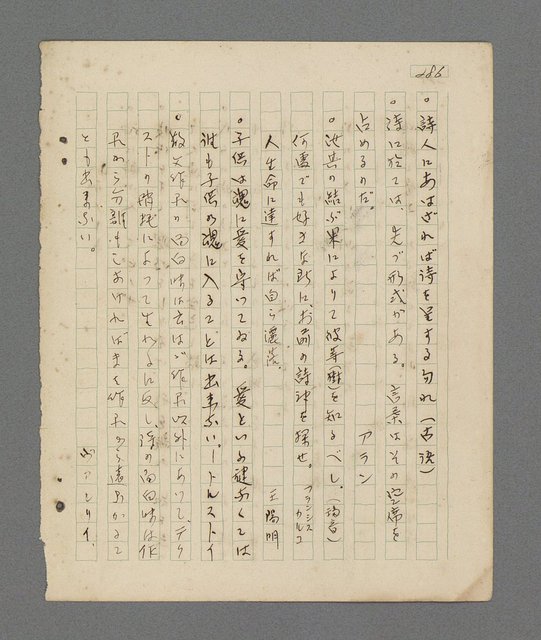 286
。詩人にあはざれば詩を呈する勿れ(古語)
。詩に於ては、先づ形式がある。言葉はその空席を
占めるのだ。　アラン
。汝其の結ぶ果によりて彼等(樹)を知るべし.(福音)
何処でも好きな所に、お前の詩神を探せ。 フランシス カルコ
人生命に達すれば自ら灑落.　王陽明
。子供は魂に愛を守つてゐる。愛といふ鍵なくては
誰も子供の魂に入ることは出来ない.ートルストイ
。散文作品の面白味は云はゞ作品以外にあつて、テク
ストの消耗によつて生れるに反し、詩の面白味は作
品から分離もしなければまた作品から遠ざかること
も出来ない。　ヴァレリイ.